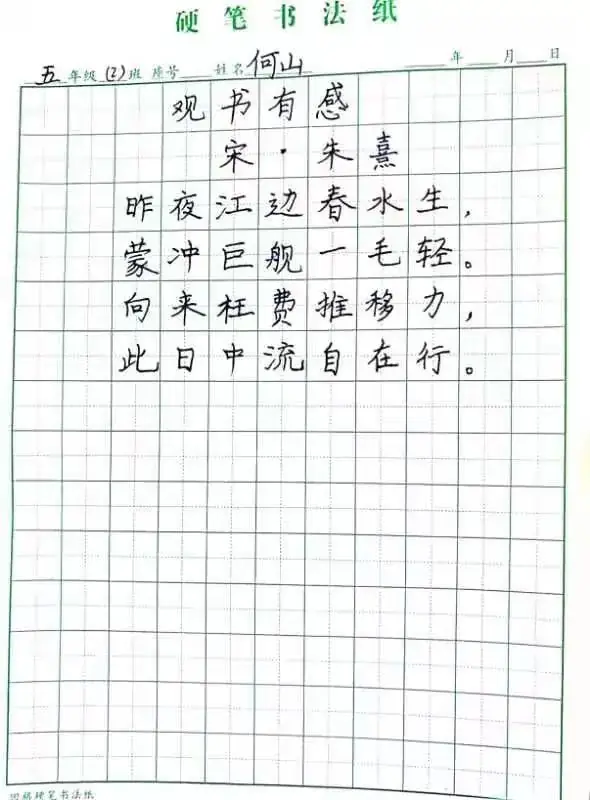 硬笔书法纸
五年级(2)班 座号 姓名 何山 年 月 日
观书有感
宋·朱熹
昨夜江边春水生，
蒙冲巨舰一毛轻。
向来枉费推移力，
此日中流自在行。
硬笔书法纸